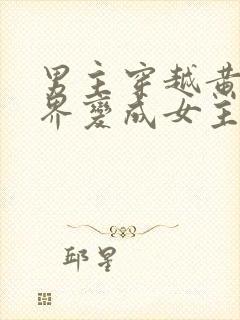 男主穿越黄
界变成女主
邱星